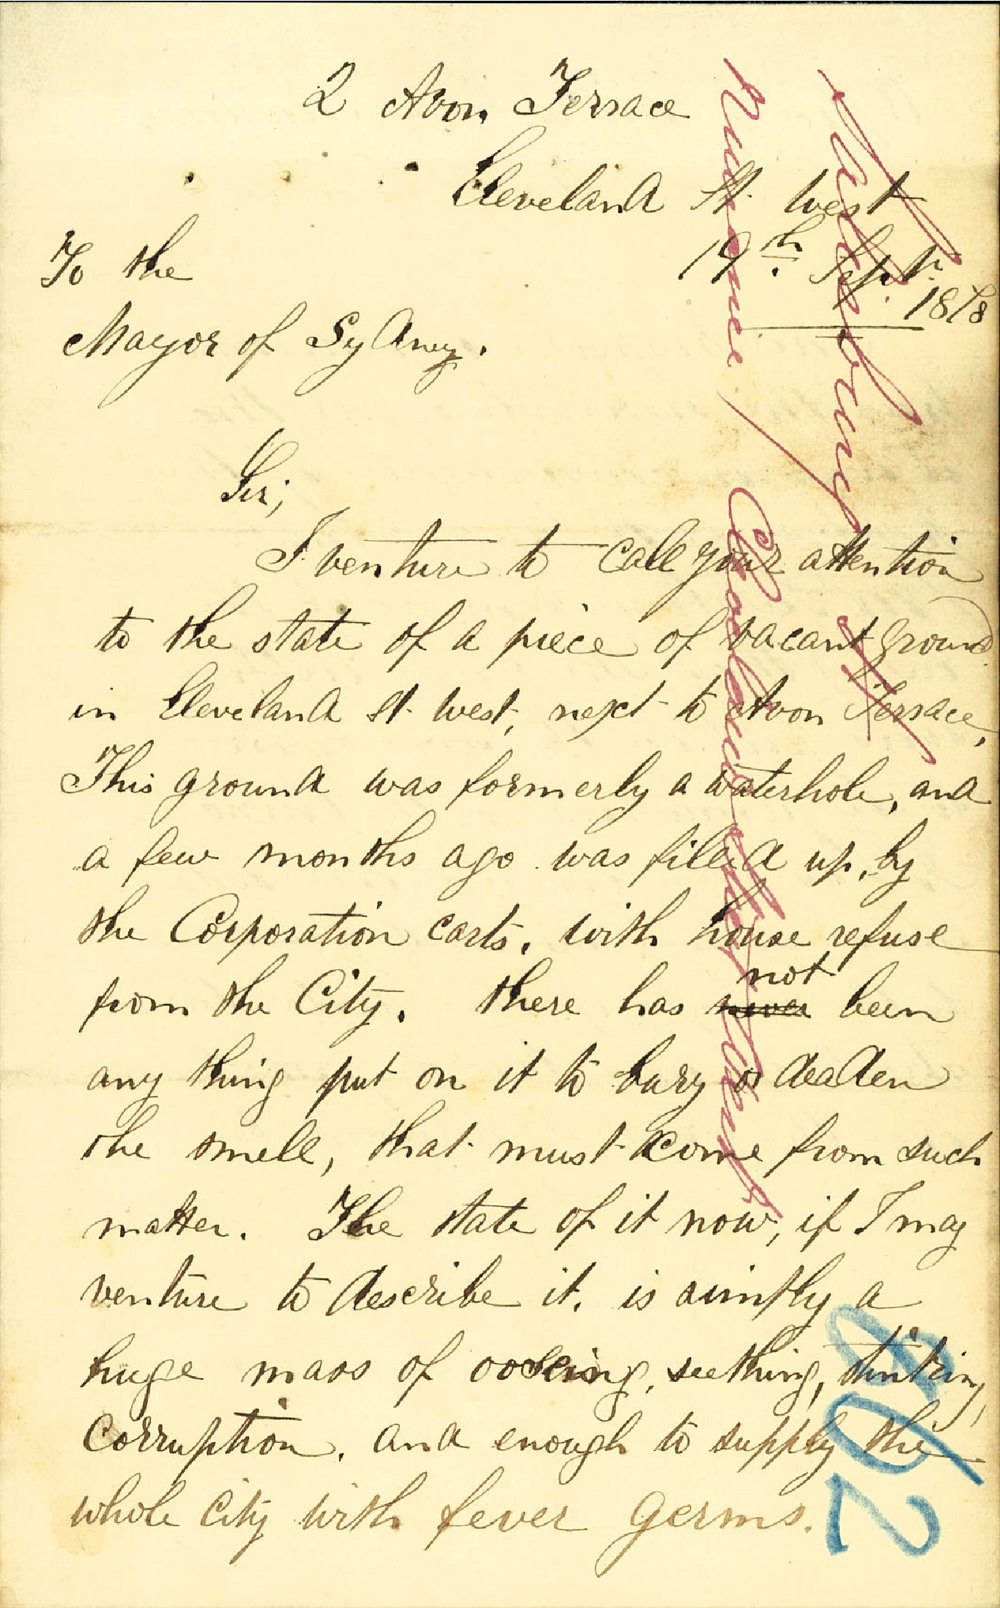 2 Avon Terrace
Cleveland St. West
19th. Septr.
1878
To the
Mayor of Sydney.
Sir;
I venture to call your attention
to the state of a piece of vacant ground
in Cleveland St. West, next to Avon Terrace,
This ground was formerly a waterhole, and
a few months ago was filled up, by
the Corporation carts, with house refuse
from the City. there has never not been
any thing put on it to bury or deaden
the smell, that must come from such
matter. The state of it now, if I may
venture to describe it, is simply a
huge mass of oozing, seething, stinking,
corruption, and enough to supply the
whole City with fever germs.
Nuisance, Cleveland Street
902